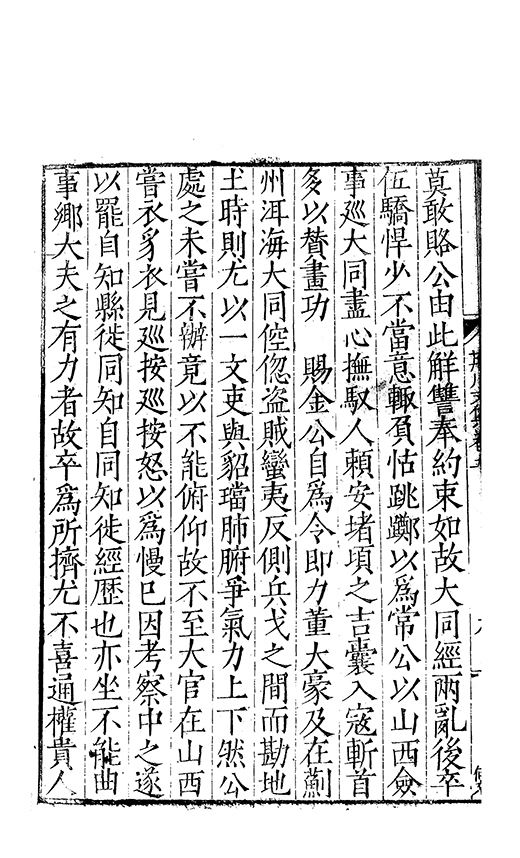 莫敢賂公由此觧讐奉約束如故大同經兩亂後卒
伍驕悍少不當意輙負怙跳躑以爲常公以山西僉
事廵大同盡心撫馭人頼安堵項之吉囊入寇斬首
多以賛畫功　賜金公自爲令即力董大豪及在薊
州洱海大同倥偬盗賊蠻夷反側兵戈之間而勘地
土時則尤以一文吏與貂璫肺腑爭氣力上下然公
處之未嘗不辦竟以不能俯仰故不至大官在山西
嘗衣豸衣見廵按廵按怒以爲慢巳因考察中之遂
以罷自知縣徙同知自同知徙經歷也亦坐不能曲
事鄉大夫之有力者故卒爲所擠尤不喜通權貴人